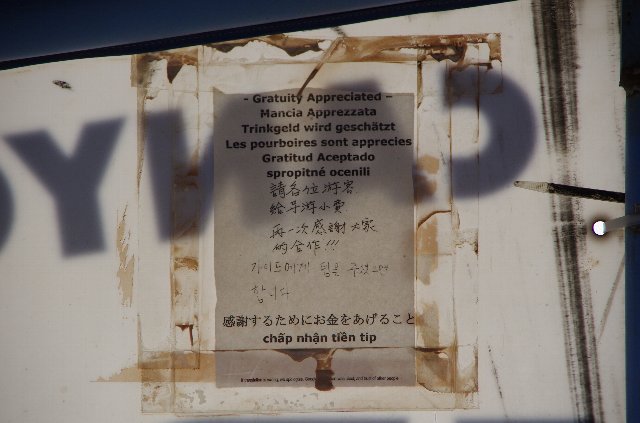 - Gratuity Appreciated -
Mancia Apprezzata
Trinkgeld wird geschätzt
Les pourboires sont apprecies
Gratitud Aceptado
spropitné ocenili
請各位游客
给导游小費
再一次感謝大家
的合作!!!
가이드에게 팁을 주셨으면
합니다
感謝するためにお金をあげること
chấp nhận tiền tip